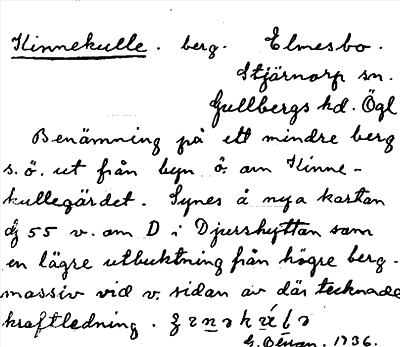 Kinnekulle. berg. Elmesbo.
Stjärnorp sn.
Gullbergs hd. Ögl
Benämning på ett mindre berg
s.ö. ut från byn ö. om Kinne-
kullegärdet. Synes å nya kartan
55 v. om D i Djurshyttan som
en lägre utbuktning från högre berg-
massiv vid v. sidan av där tecknade
kraftledning.
1936.